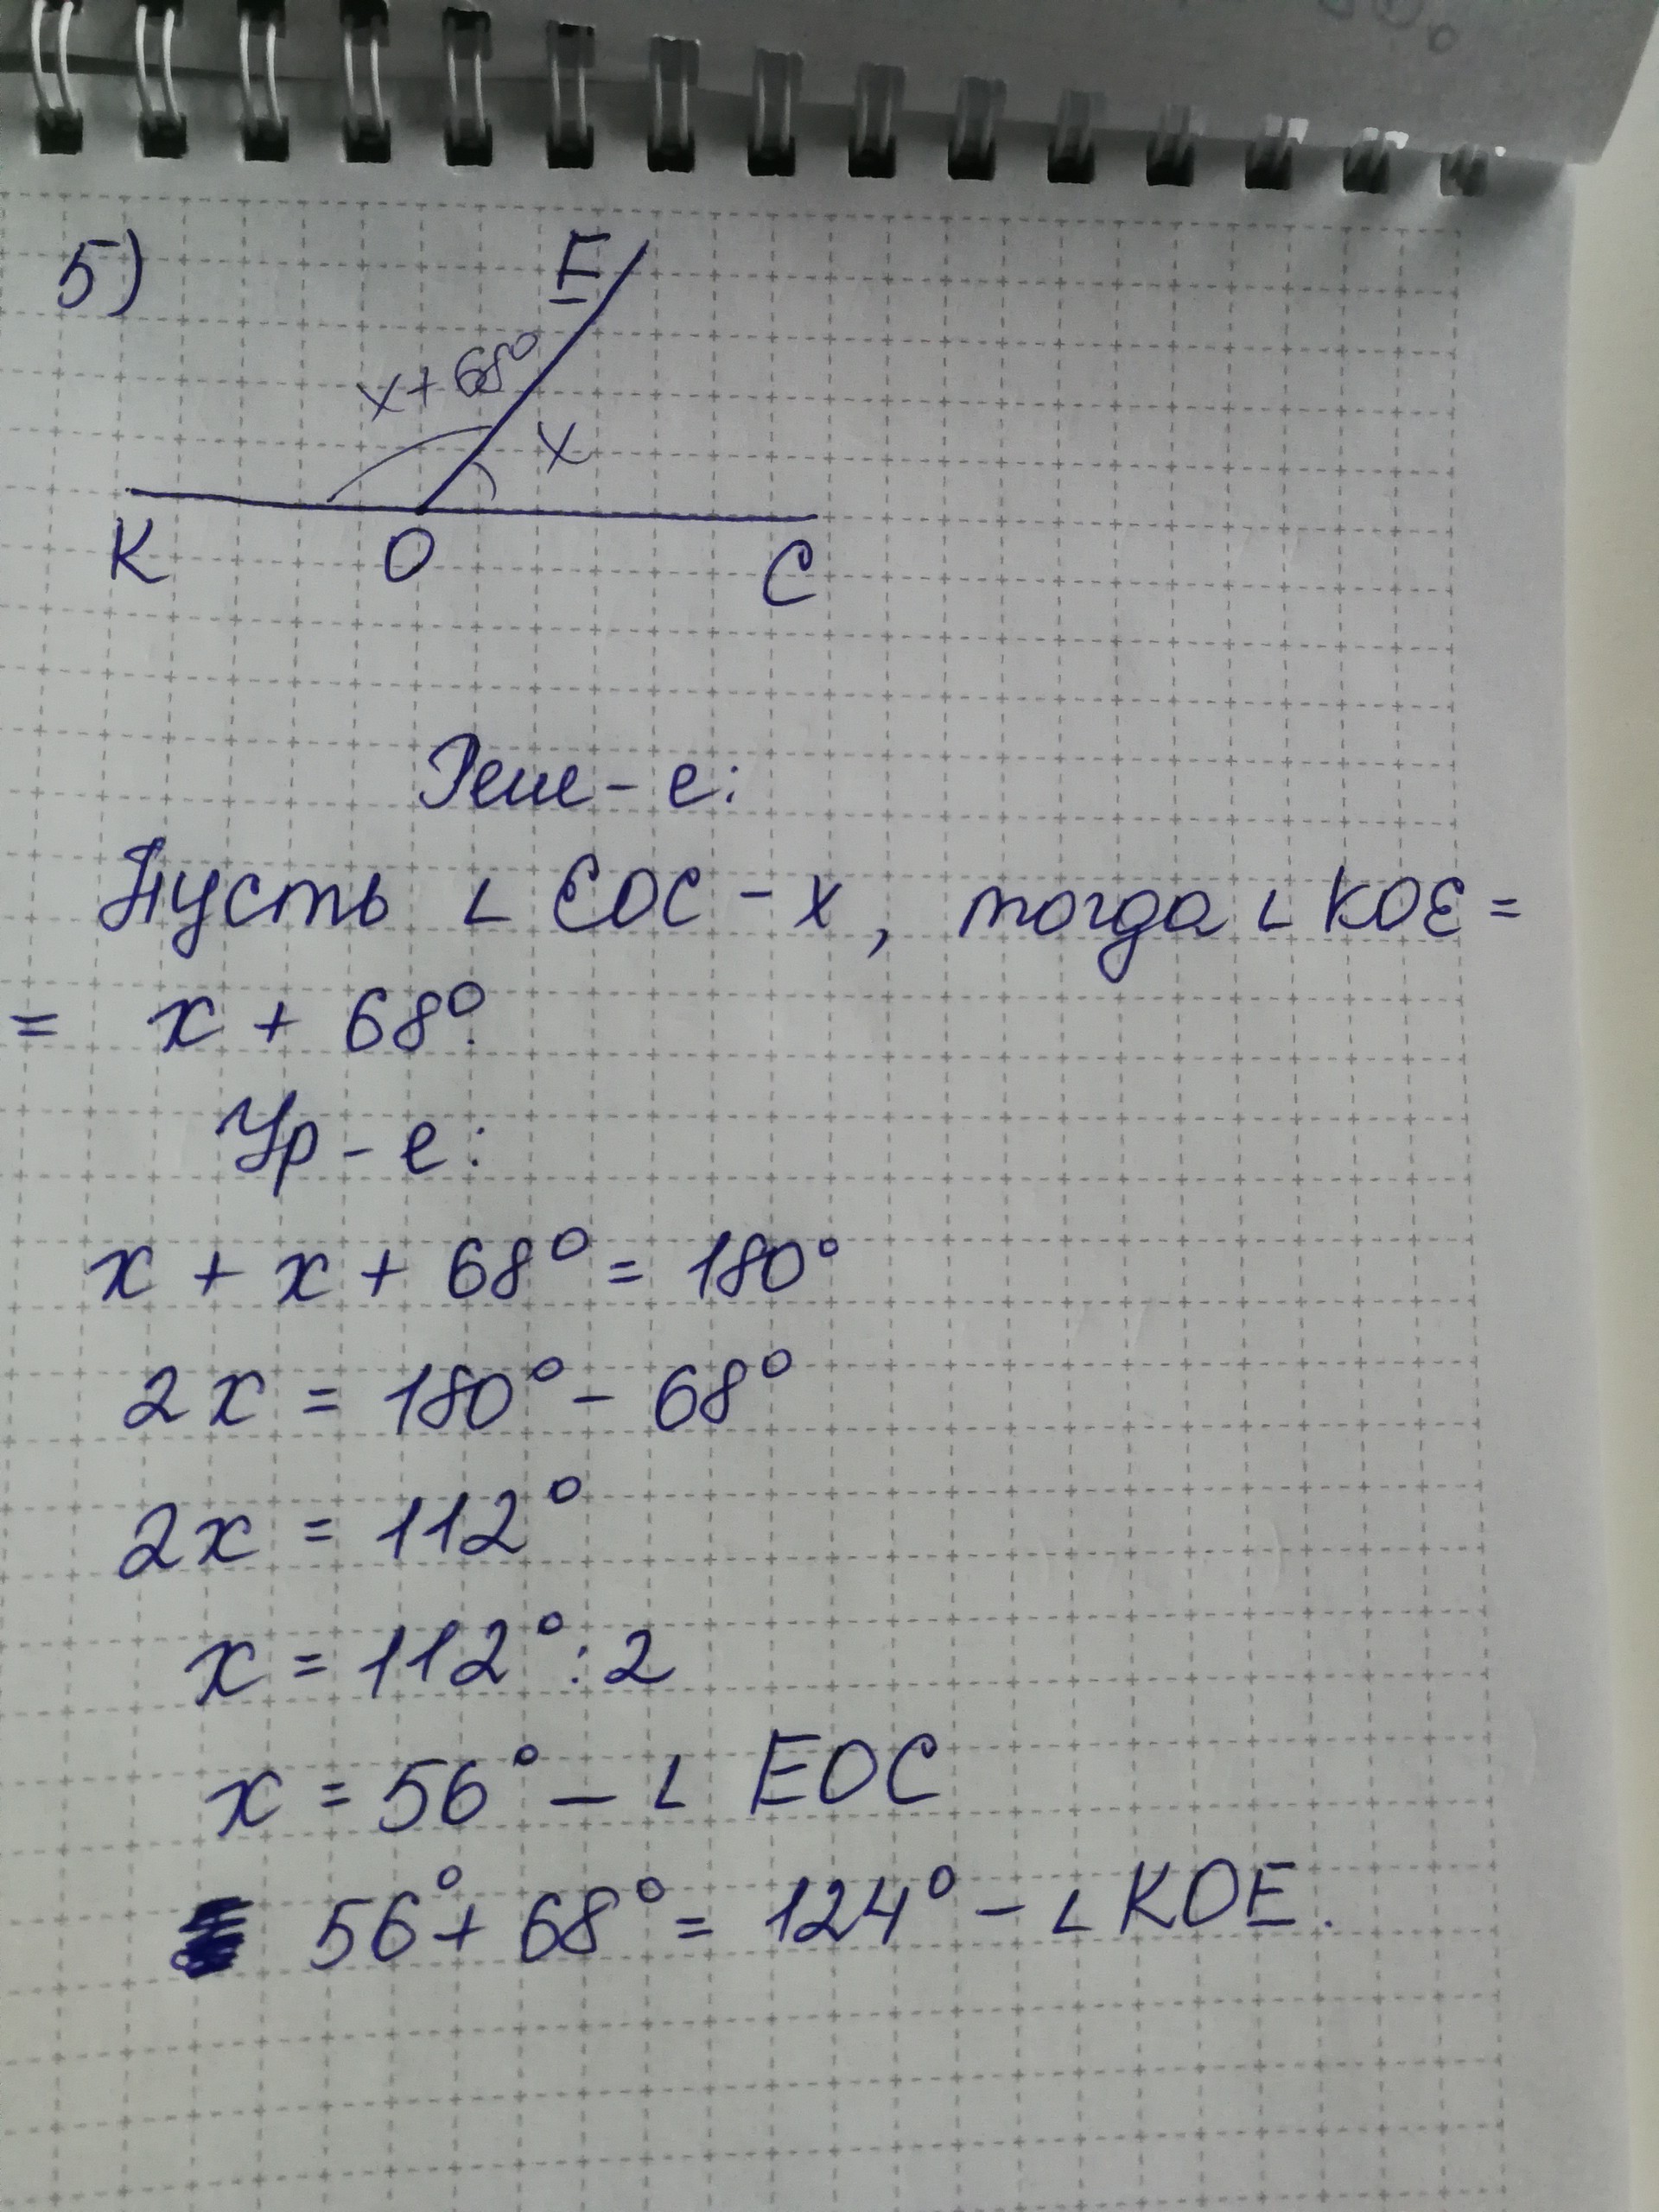 5)
E
x+68°
x
K O C
Реше-е:
Пусть ∠ EOC - x, тогда ∠ KOE =
= x + 68°.
Ур-е:
x + x + 68° = 180°
2x = 180° - 68°
2x = 112°
x = 112° : 2
x = 56° - ∠ EOC
56° + 68° = 124° - ∠ KOE.